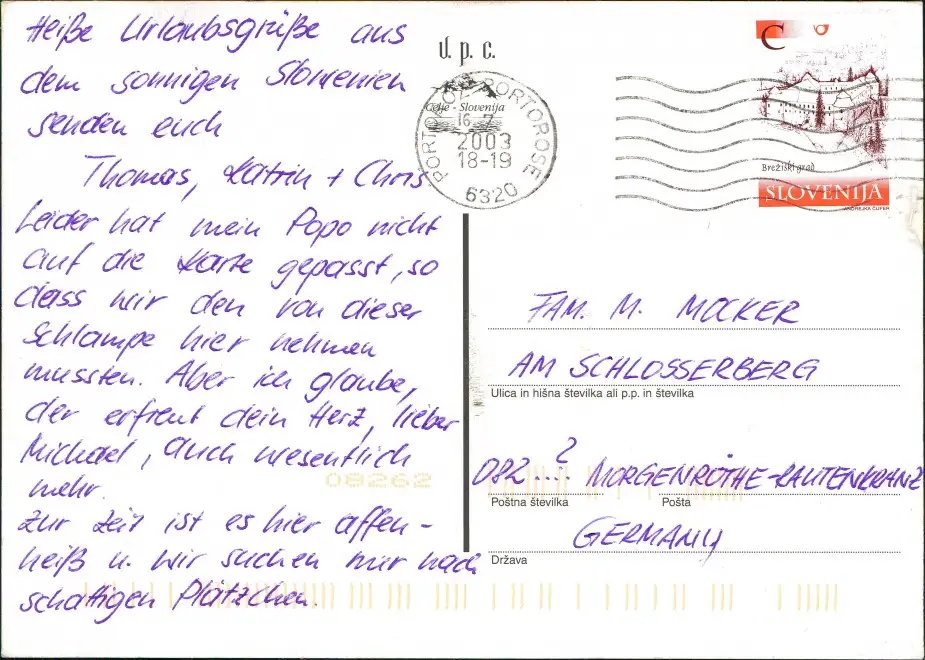 Heiße Urlaubsgrüße aus
dem sonnigen Slowenien
senden euch
Thomas, Katrin + Chris
Leider hat mein Popo nicht
auf die Karte gepasst, so
dass wir den von dieser
Schlampe hier nehmen
mussten. Aber ich glaube,
der erfreut dein Herz, lieber
Michael, auch wesentlich
mehr.
Zur Zeit ist es hier affen-
heiß u. wir suchen nur nach
schattigen Plätzchen.
08262
v. p. c.
Celje - Slovenija
PORTOROŽ PORTOROSE
16 7
2003
18-19
6320
C
Brežiški grad
SLOVENIJA
ANDREJKA ČUFER
FAM. M. MOCKER
AM SCHLOSSERBERG
Ulica in hišna številka ali p.p. in številka
082 ....? MORGENRÖTHE-RAUTENKRANZ
Poštna številka Pošta
GERMANY
Država